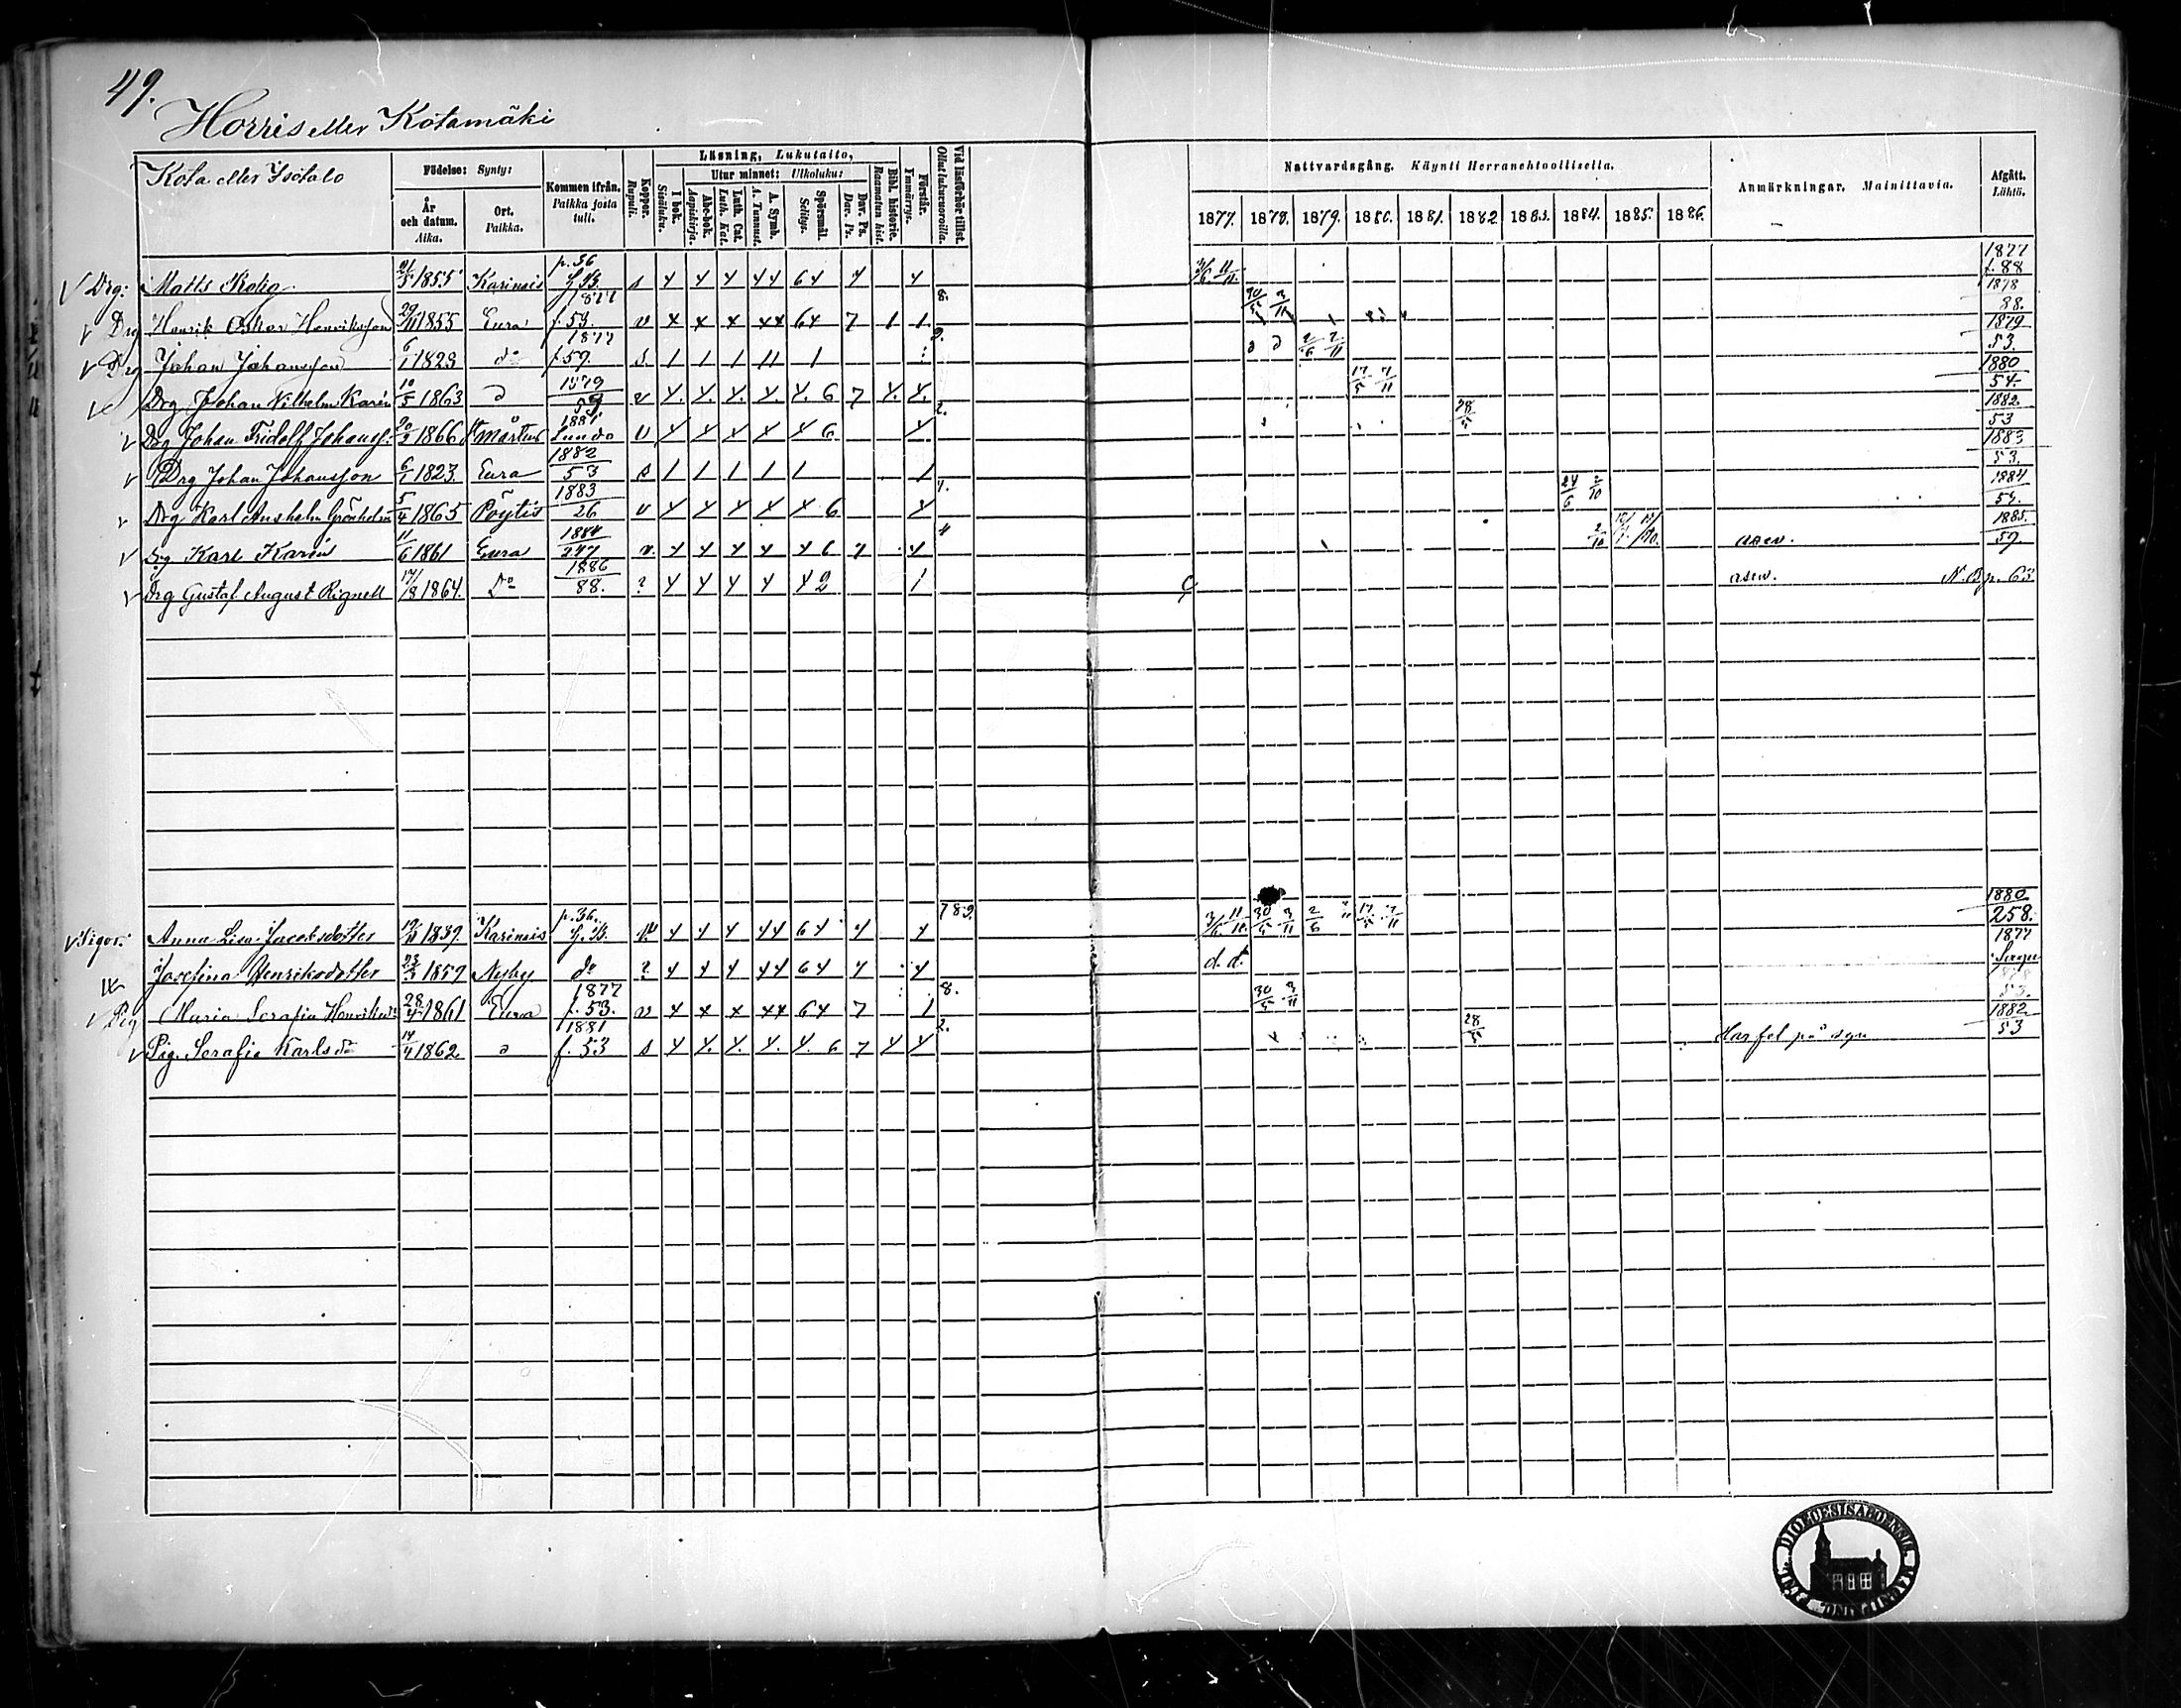 49.
Horris eller Kotamäki
Kota eller Isotalo
Födelse: Synty:
År och datum. Aika.
Ort. Paikka.
Kommen ifrån. Paikka josta tuli.
Koppor. Rupuli.
Läsning, Lukutaito,
I bok. Sisäluku.
Utur minnet: Ulkoluku:
Abc-bok. Aapiskirja.
Luth. Cat. Luth. Kat.
A. Symb. A. Tunnust.
Spörsmål. Selitys.
Dav. Ps. Dav. Ps.
Bibl. historie. Raamatun hist.
Förstår. Ymmärrys.
Vid läsförhör tillst. Ollut lukuvuoroilla.
Nattvardsgång. Käynti Herranehtoollisella.
1877. 1878. 1879. 1880. 1881. 1882 1883. 1884. 1885. 1886.
Anmärkningar. Mainittavia.
Afgått. Lähtö.
Drg: Matts 1855 Karinais p. 36 s 4 4 4 44 64 4 4 1877 f. 88
Drg Henrik Oskar Henriksson 29/11 1855 Eura 1877 f. 53. v x x x xx 64 7 1 1 8. 30/5 3/11 1878 88.
Drg Johan Johansson 6/1 1823 do 1877 f. 59. s. 1 1 1 11 1 9. 2/6 2/11 1879 53.
Drg Johan Vilhelm Karin 10/5 1863 1879 59 v 4. 4. 4. 4. 4. 6 7 4. 4. 17/5 7/11 1880 54.
Drg Johan Fridolf Johanss. 20/3 1866 St Mårtens 1881 Lundo v 4 4 4 4 4 6 4 2. 28/5 1882 53
Drg Johan Johansson 6/1 1823. Eura 1882 53 s 1 1 1 1 1 1 1883 53.
Drg Karl Anshelm Grönholm 5/4 1865 Pöytis 1883 26 v 4 4 4 4 4 6 4 4. 24/6 2/10 1884
Drg Karl Karin 11/6 1861 Eura 1884 247 v. 4 4 4 4 4 6 4 4 4 2/10 1885. 59.
Drg Gustaf August Rignell 1864. Do 1886 88. ? 4 4 4 4 4 2 1 N.B. p. 63
Pigor: Anna Lisa Jacobsdotter 1839. Karinais p. 36. 4 4 4 44 64 4 4 789. 3/6 11/11 30/5 3/11 2/6 17/5 7/11 1880 258.
Josefina Henriksdotter 23/3 1857 Nyby do ? 4 4 4 44 64 4 4 d. d. 1877
Pig Maria Serafia Henriksdr 28/4 1861 Eura 1877 f. 53. v 4 x x xx 64 7 1 8. 30/5 3/11 53.
Pig. Serafia Karlsdr 14/4 1862 1881 f. 53 s 4 4. 4. 4. 4. 6 7 4 4 2. 28/5 Har fel på syn 1882 53